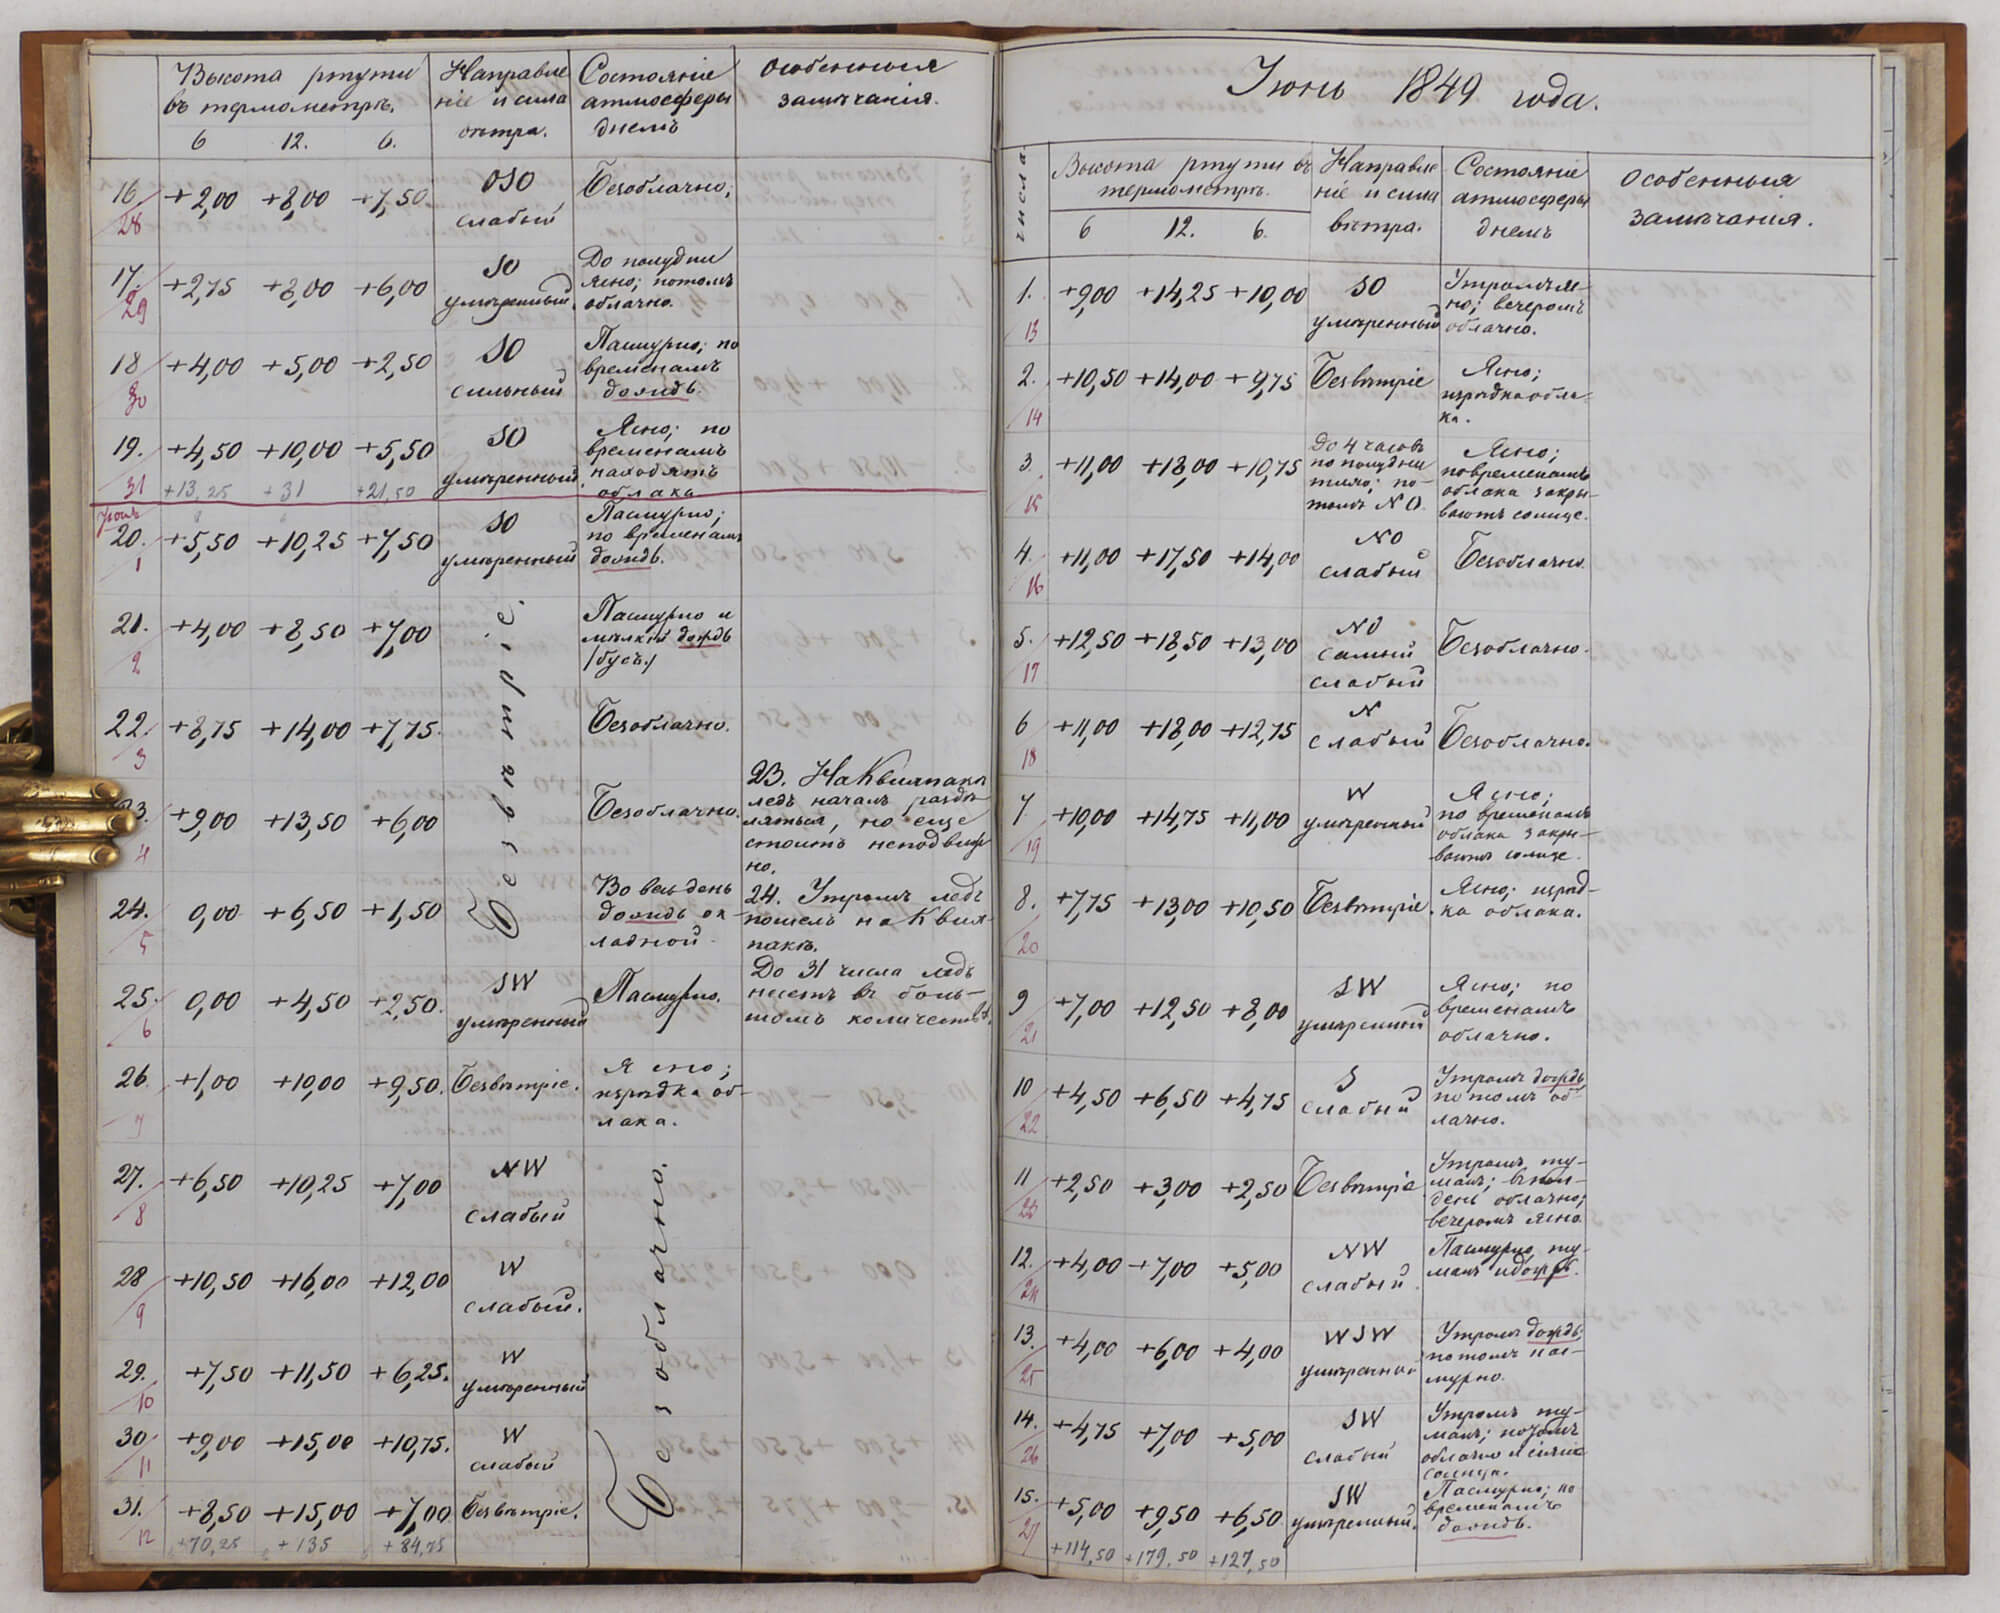 Высота ртути
въ термометрѣ.
6 12. 6.
Направле
ніе и сила
вѣтра.
Состояніе
атмосферы
днемъ
Особенныя
замѣчанія.
16/28 +2,00 +8,00 +7,50
OSO
слабый
Безоблачно;
17./29 +2,75 +8,00 +6,00
SO
умѣренный.
До полудни
ясно; потомъ
облачно.
18/30 +4,00 +5,00 +2,50
SO
сильный
Пасмурно; по
временамъ
дождь.
19./31 +4,50 +10,00 +5,50
SO
умѣренный.
Ясно; по
временамъ
находятъ
облака
+13,25 +31 +21,50
Іюнь
20./1 +5,50 +10,25 +7,50
SO
умѣренный
Пасмурно;
по временамъ
дождь.
21./2 +4,00 +8,50 +7,00
Безвѣтріе.
Пасмурно и
мѣлкій дождь
/бусъ./
22./3 +8,75 +14,00 +7,75.
Безоблачно.
23./4 +9,00 +13,50 +6,00
Безоблачно.
23. На Квихпакѣ
ледъ началъ раздѣ
ляться, но еще
стоитъ неподвиж
но.
24./5 0,00 +6,50 +1,50
Во весь день
дождь ок-
ладной.
24. Утромъ ледъ
пошелъ на Квих
пакѣ.
25./6 0,00 +4,50 +2,50.
SW
умѣренный
Пасмурно.
До 31 числа ледъ
несетъ въ боль-
шомъ количествѣ.
26./7 +1,00 +10,00 +9,50.
Безвѣтріе.
Ясно;
изрѣдка об-
лака.
27./8 +6,50 +10,25 +7,00
NW
слабый
Безоблачно.
28/9 +10,50 +16,00 +12,00
W
слабый.
29./10 +7,50 +11,50 +6,25.
W
умѣренный
30/11 +9,00 +15,00 +10,75.
W
слабый
31./12 +8,50 +15,00 +7,00
Безвѣтріе.
+70,25 +135 +84,75
Іюнь 1849 года.
Числа.
Высота ртути въ
термометрѣ.
6 12. 6.
Направле
ніе и сила
вѣтра.
Состояніе
атмосферы
днемъ
Особенныя
замѣчанія.
1./13 +9,00 +14,25 +10,00
SO
умѣренный
Утромъ яс-
но; вечеромъ
облачно.
2./14 +10,50 +14,00 +9,75
Безвѣтріе
Ясно;
изрѣдка обла-
ка.
3./15 +11,00 +18,00 +10,75
До 4 часовъ
по полудни
тихо; по-
томъ NO.
Ясно;
по временамъ
облака закры-
ваютъ солнце.
4./16 +11,00 +17,50 +14,00
NO
слабый
Безоблачно.
5./17 +12,50 +18,50 +13,00
NO
самый
слабый
Безоблачно.
6/18 +11,00 +18,00 +12,75
N
слабый
Безоблачно.
7/19 +10,00 +14,75 +11,00
W
умѣренный
Ясно;
по временамъ
облака закры-
ваютъ солнце.
8./20 +7,75 +13,00 +10,50
Безвѣтріе.
Ясно; изрѣд-
ка облака.
9/21 +7,00 +12,50 +8,00
SW
умѣренный
Ясно; по
временамъ
облачно.
10/22 +4,50 +6,50 +4,75
S
слабый
Утромъ дождь
потомъ об-
лачно.
11/23 +2,50 +3,00 +2,50
Безвѣтріе
Утромъ ту-
манъ; въ пол-
день облачно;
вечеромъ ясно.
12./24 +4,00 +7,00 +5,00
NW
слабый.
Пасмурно, ту-
манъ и дождь.
13./25 +4,00 +6,00 +4,00
WSW
умѣренный
Утромъ дождь;
потомъ пас-
мурно.
14./26 +4,75 +7,00 +5,00
SW
слабый
Утромъ ту-
манъ; потомъ
облачно и сіяніе
солнца.
15./27 +5,00 +9,50 +6,50
SW
умѣренный.
Пасмурно; по
временамъ
дождь.
+114,50 +179,50 +127,50